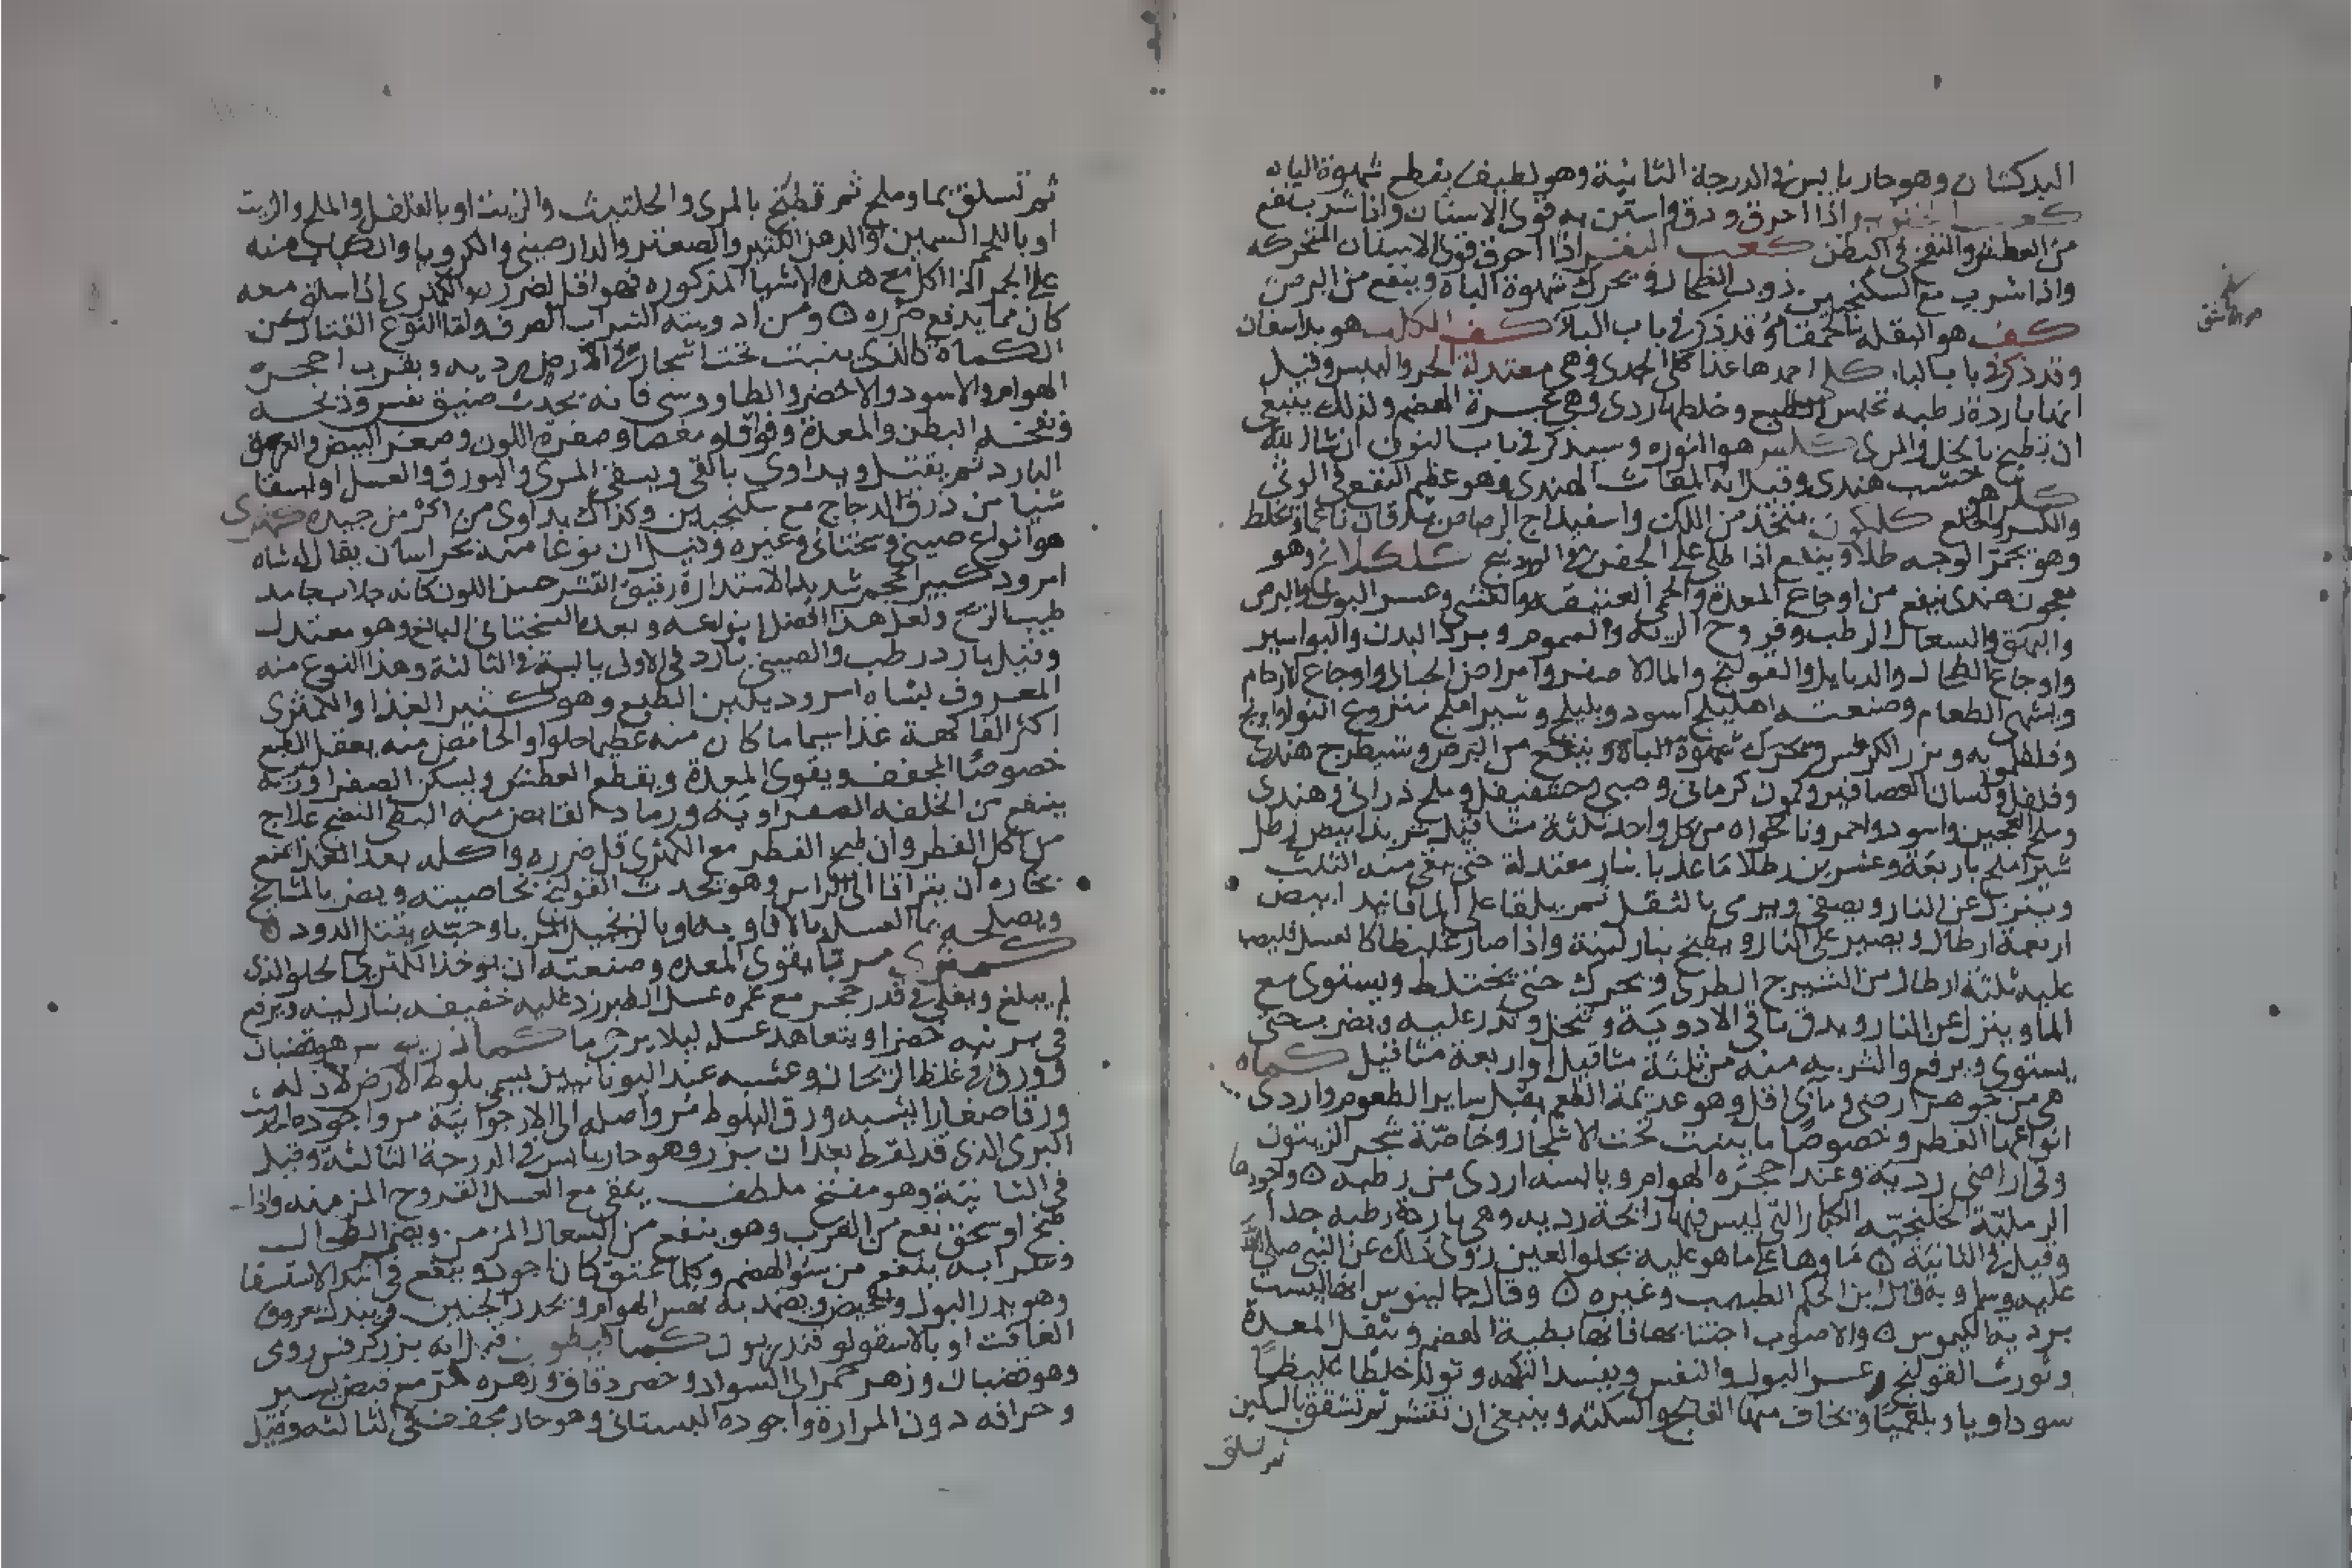 البدكشان وهو حار يابس في الدرجة الثانية وهو لطيف يقطع شهوة الباه
كعب اذا احرق ودق واستن به قوى الاسنان واذا شرب ينفع
من العطش والنفخ في البطن كعب البقر اذا احرق قوى الاسنان المتحركه
واذا شرب مع السكنجبين ذوب الطحال ويحرك شهوة الباه وينفع من البرص
كف هو البقله الحمقا وقد ذكر في باب البا كف الكلب هو بداسغان
وقد ذكر في باب البا كلى احمدها غذا كلى الجدي وهي معتدلة الحر واليبس وقيل
انها باردة رطبه تحبس الطبع وخلطها ردي وهي عسرة الهضم ولذلك ينبغي
ان تطبخ بالخل والمري كلس هو النوره وسيذكر في باب النون ان شا الله
كلز هو خشب هندي وقيل انه المغاث الهندي وهو عظيم النفع في الوثي
والكسر والخلع كلكون يتخذ من اللك واسفيداج الرصاص
وهو يحمر الوجه طلا وينفع اذا طلي على الجفن كلكلانج وهو
معجون هندي ينفع من اوجاع المعدة والحمى العتيقه والغشي وعسر البول والبرص
والبهق والسعال الرطب وقروح الرية والسموم وبرد البدن والبواسير
واوجاع الطحال والدبايل والقولنج والما الاصفر وامراض الحبالى واوجاع الارحام
ويشهي الطعام وصنعته اهليلج اسود وبليلج وشير املج منزوع النوى
وفلفلمويه وبزر الكرفس ويحرك شهوة الباه وينفع من البرص وشيطرج هندي
وفلفل ولسان العصافير وكمون كرماني وملح ذراني وهندي
وملح العجين واسود واحمر ونانخواه من كل واحد ثلثة مثاقيل تربد ابيض رطل
شير املج باربعة وعشرين رطلا ما عذبا بنار معتدلة حتى يبقى منه الثلث
وينزل عن النار ويصفى ويرمى بالثفل ثم يلقا على الما فانيد ابيض
اربعة ارطال ويصير على النار ويطبخ بنار لينة واذا صار غليظا كالعسل
عليه ثلثة ارطال من الشيرج الطري ويحرك حتى يختلط ويستوي مع
الما وينزل عن النار ويدق باقي الادوية وتنخل وتذر عليه ويضرب حتى
يستوي ويرفع والشربه منه من ثلثة مثاقيل او اربعة مثاقيل كماه
هي من جوهر ارضي ومآي اقل وهو عديمة الطعم يقبل ساير الطعوم واردى
انواعها الفطر وخصوصا ما ينبت تحت الاشجار وخاصة شجر الزيتون
وفي اراضي ردية وعند اجحرة الهوام ويابسه اردى من رطبه واجودها
الرملية الكبار التي ليس فيها رايحة رديه وهي باردة رطبه جدا
وقيل في الثانية ماوها على ما هو عليه يجلو العين روي ذلك عن النبي صلى الله
عليه وسلم وبه قال ابن الحكم الطبيب وغيره وقال جالينوس انها ليست
بردية الكيموس والاصوب اجتنابها فانها بطية الهضم وتثقل المعدة
وتورث القولنج وعسر البول والنفس ويفسد النكهه وتولد خلطا غليظا
سوداويا وبلغميا ويخاف منها الفالج والسكته وينبغي ان تقشر ثم تشقق بالسكين
ثم تسلق
ثم تسلق بما وملح ثم تطبخ بالمري والحلتيت والزيت او بالفلفل والملح والزيت
او باللحم السمين او الدهن الكثير والصعتر والدارصيني والكرويا والكباب منه
على الجمر اذا اكل مع هذه الاشيا المذكوره فهو اقل لضرره والكمثرى اذا سلق معه
كان مما يدفع ضرره ومن ادويته الشراب الصرف ولقا النوع القتال من
الكماة كالذي ينبت تحت اشجار وفي الارض رديه وبقرب اجحره
الهوام والاسود والاخضر والطاووسي فانه يحدث ضيق نفس وذبحه
ونفخه البطن والمعدة وفواقا ومغصا وصفرة اللون وصغر النبض والعرق
البارد ثم يقتل ويداوى بالقي ويسقى المري والبورق والعسل او يسقا
شيا من ذرق الدجاج مع سكنجبين وكذاك يداوى من اكثر من جيده كمثرى
هو انواع صيني وسختاني وغيره وقيل ان نوعا منه بخراسان يقال له شاه
امرود كبير الحجم شديد الاستدارة رقيق القشر حسن اللون كانه جلاب جامد
طيب الريح ولعل هذا افضل انواعه وبعده السختاني البالغ وهو معتدل
وقيل بارد رطب والصيني بارد في الاولى يابسة في الثالثة وهذا النوع منه
المعروف بشاه امرود يلين الطبع وهو كثير الغذا والكمثرى
اكثر الفاكهة غذا سيما ما كان منه عظيما حلوا والحامض منه يعقل الطبع
خصوصا المجفف ويقوي المعدة ويقطع العطش ويسكن الصفرا وربه
ينفع من الخلفه الصفراويه ورماد القابض منه البطي النضج علاج
من اكل الفطر وان طبخ الفطر مع الكمثرى قل ضرره واكله بعد الغذا يمنع
بخاره ان يتراقا الى الراس وهو يحدث القولنج بخاصيته ويضر بالمشايخ
ويصلحه ما العسل بالافاويه او بالزنجبيل المربا وحبه يقتل الدود
كمثرى مربا يقوي المعده وصنعته ان يوخذ الكمثرى الحلو الذي
لم يبلغ ويغلى في قدر حجر مع غمره عسل الطبرزد غليه خفيفه بنار لينه ويرفع
في برنيه خضرا ويتعاهد عسل ليلا يرخى ما كماذريوس هو قضبان
وورق في غلظ الريحان وعشبه عند اليونانيين يسمى بلوط الارض لان له
ورقا صغارا يشبه ورق البلوط مر واصله الى الارجوانية مر واجوده الحديث
البري الذي قد لقط بعد ان بزر وهو حار يابس في الدرجة الثالثة وقيل
في الثانية وهو مفتح ملطف ينقي مع العسل القروح المزمنه واذا
طبخ او سحق نفع من الغرب وهو ينفع من السعال المزمن ويضمر الطحال
وشرابه ينفع من سو الهضم وكلما عتق كان اجود وينفع في ابتدا الاستسقا
وهو يدر البول والحيض ويضمد به نهس الهوام ويحدر الجنين ويبدل بعروق
الغافت او بالاسقولوقندريون كمافيطوس قيل انه بزر كرفس رومي
وهو قضبان وزهر حمر الى السواد وخضر دقاق وزهره مر مع قبض يسير
وحرافه دون المرارة واجوده البستاني وهو حار مجفف في الثالثه وقيل